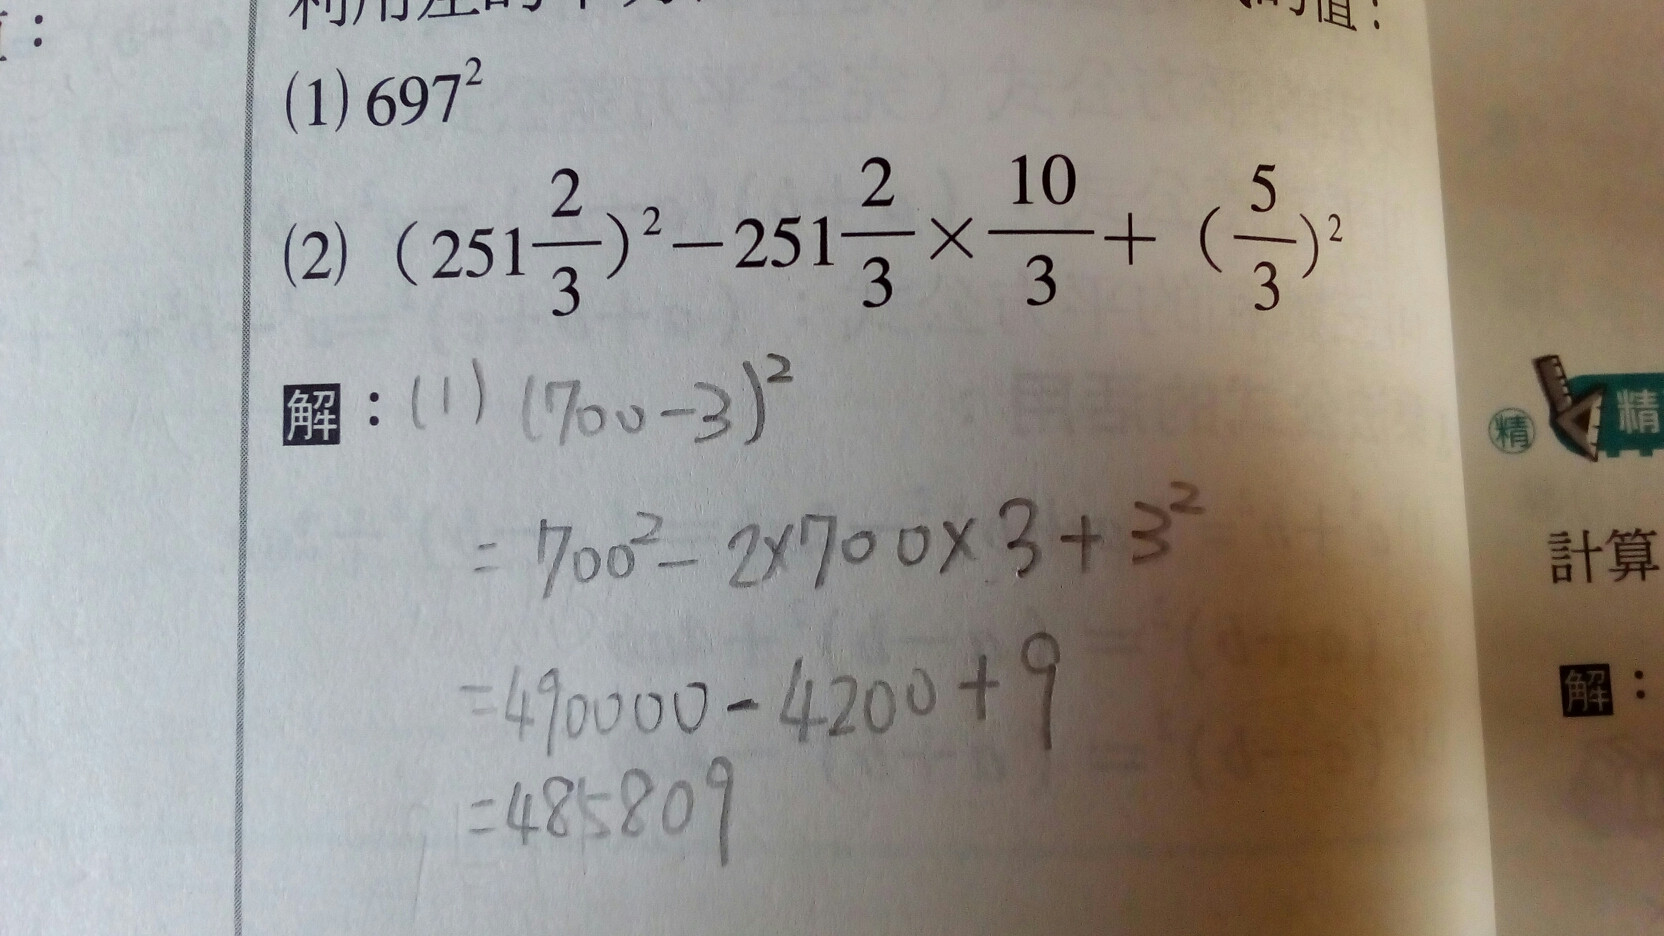 利用差的平方
的值：
(1) 697²
(2) (251 2/3)² − 251 2/3 × 10/3 + (5/3)²
解：(1) (700−3)²
= 700² − 2×700×3 + 3²
= 490000 − 4200 + 9
= 485809
精
精
計算
解：